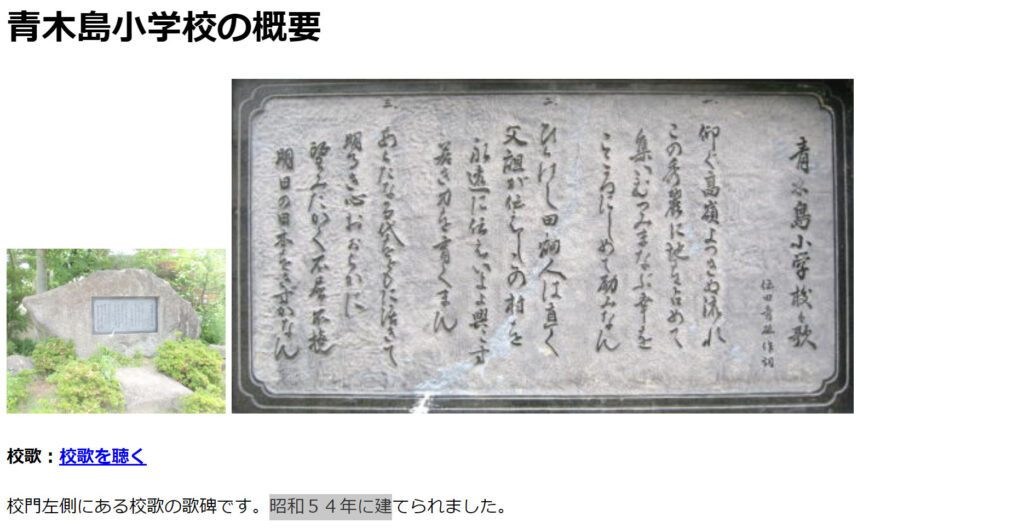 青木島小学校の概要
青木島小学校の歌
作詞
一、
仰ぐ高嶺よつきぬ流れ
この秀麗に地を占めて
集いむつみまなぶ幸を
こころにしめて励みなん
二、
ひらけし田畑人は直く
父祖が伝えしこの村を
永遠に伝えいよよ興こす
若き力を育くまん
三、
あらたなる代をともに活きて
明るき心おおらかに
望みたかく不屈不撓
明日の日本をきずかなん
校歌：校歌を聴く
校門左側にある校歌の歌碑です。昭和５４年に建てられました。